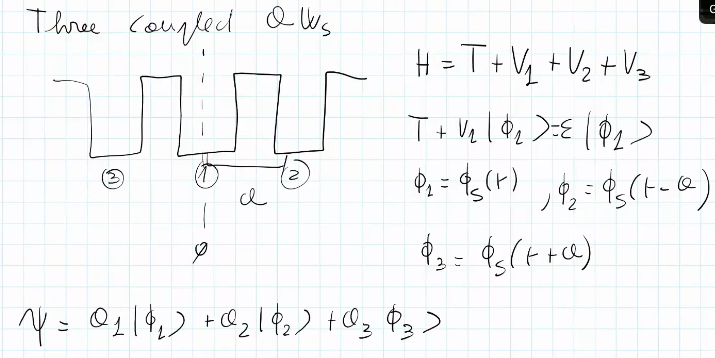 Three coupled QWs
H = T + V₁ + V₂ + V₃
T + V₁ |ϕ₁⟩ = ε |ϕ₁⟩
③ ① ②
a
ϕ₁ = ϕₛ(r) , ϕ₂ = ϕₛ(r - a)
0
ϕ₃ = ϕₛ(r + a)
ψ = a₁|ϕ₁⟩ + a₂|ϕ₂⟩ + a₃ ϕ₃⟩